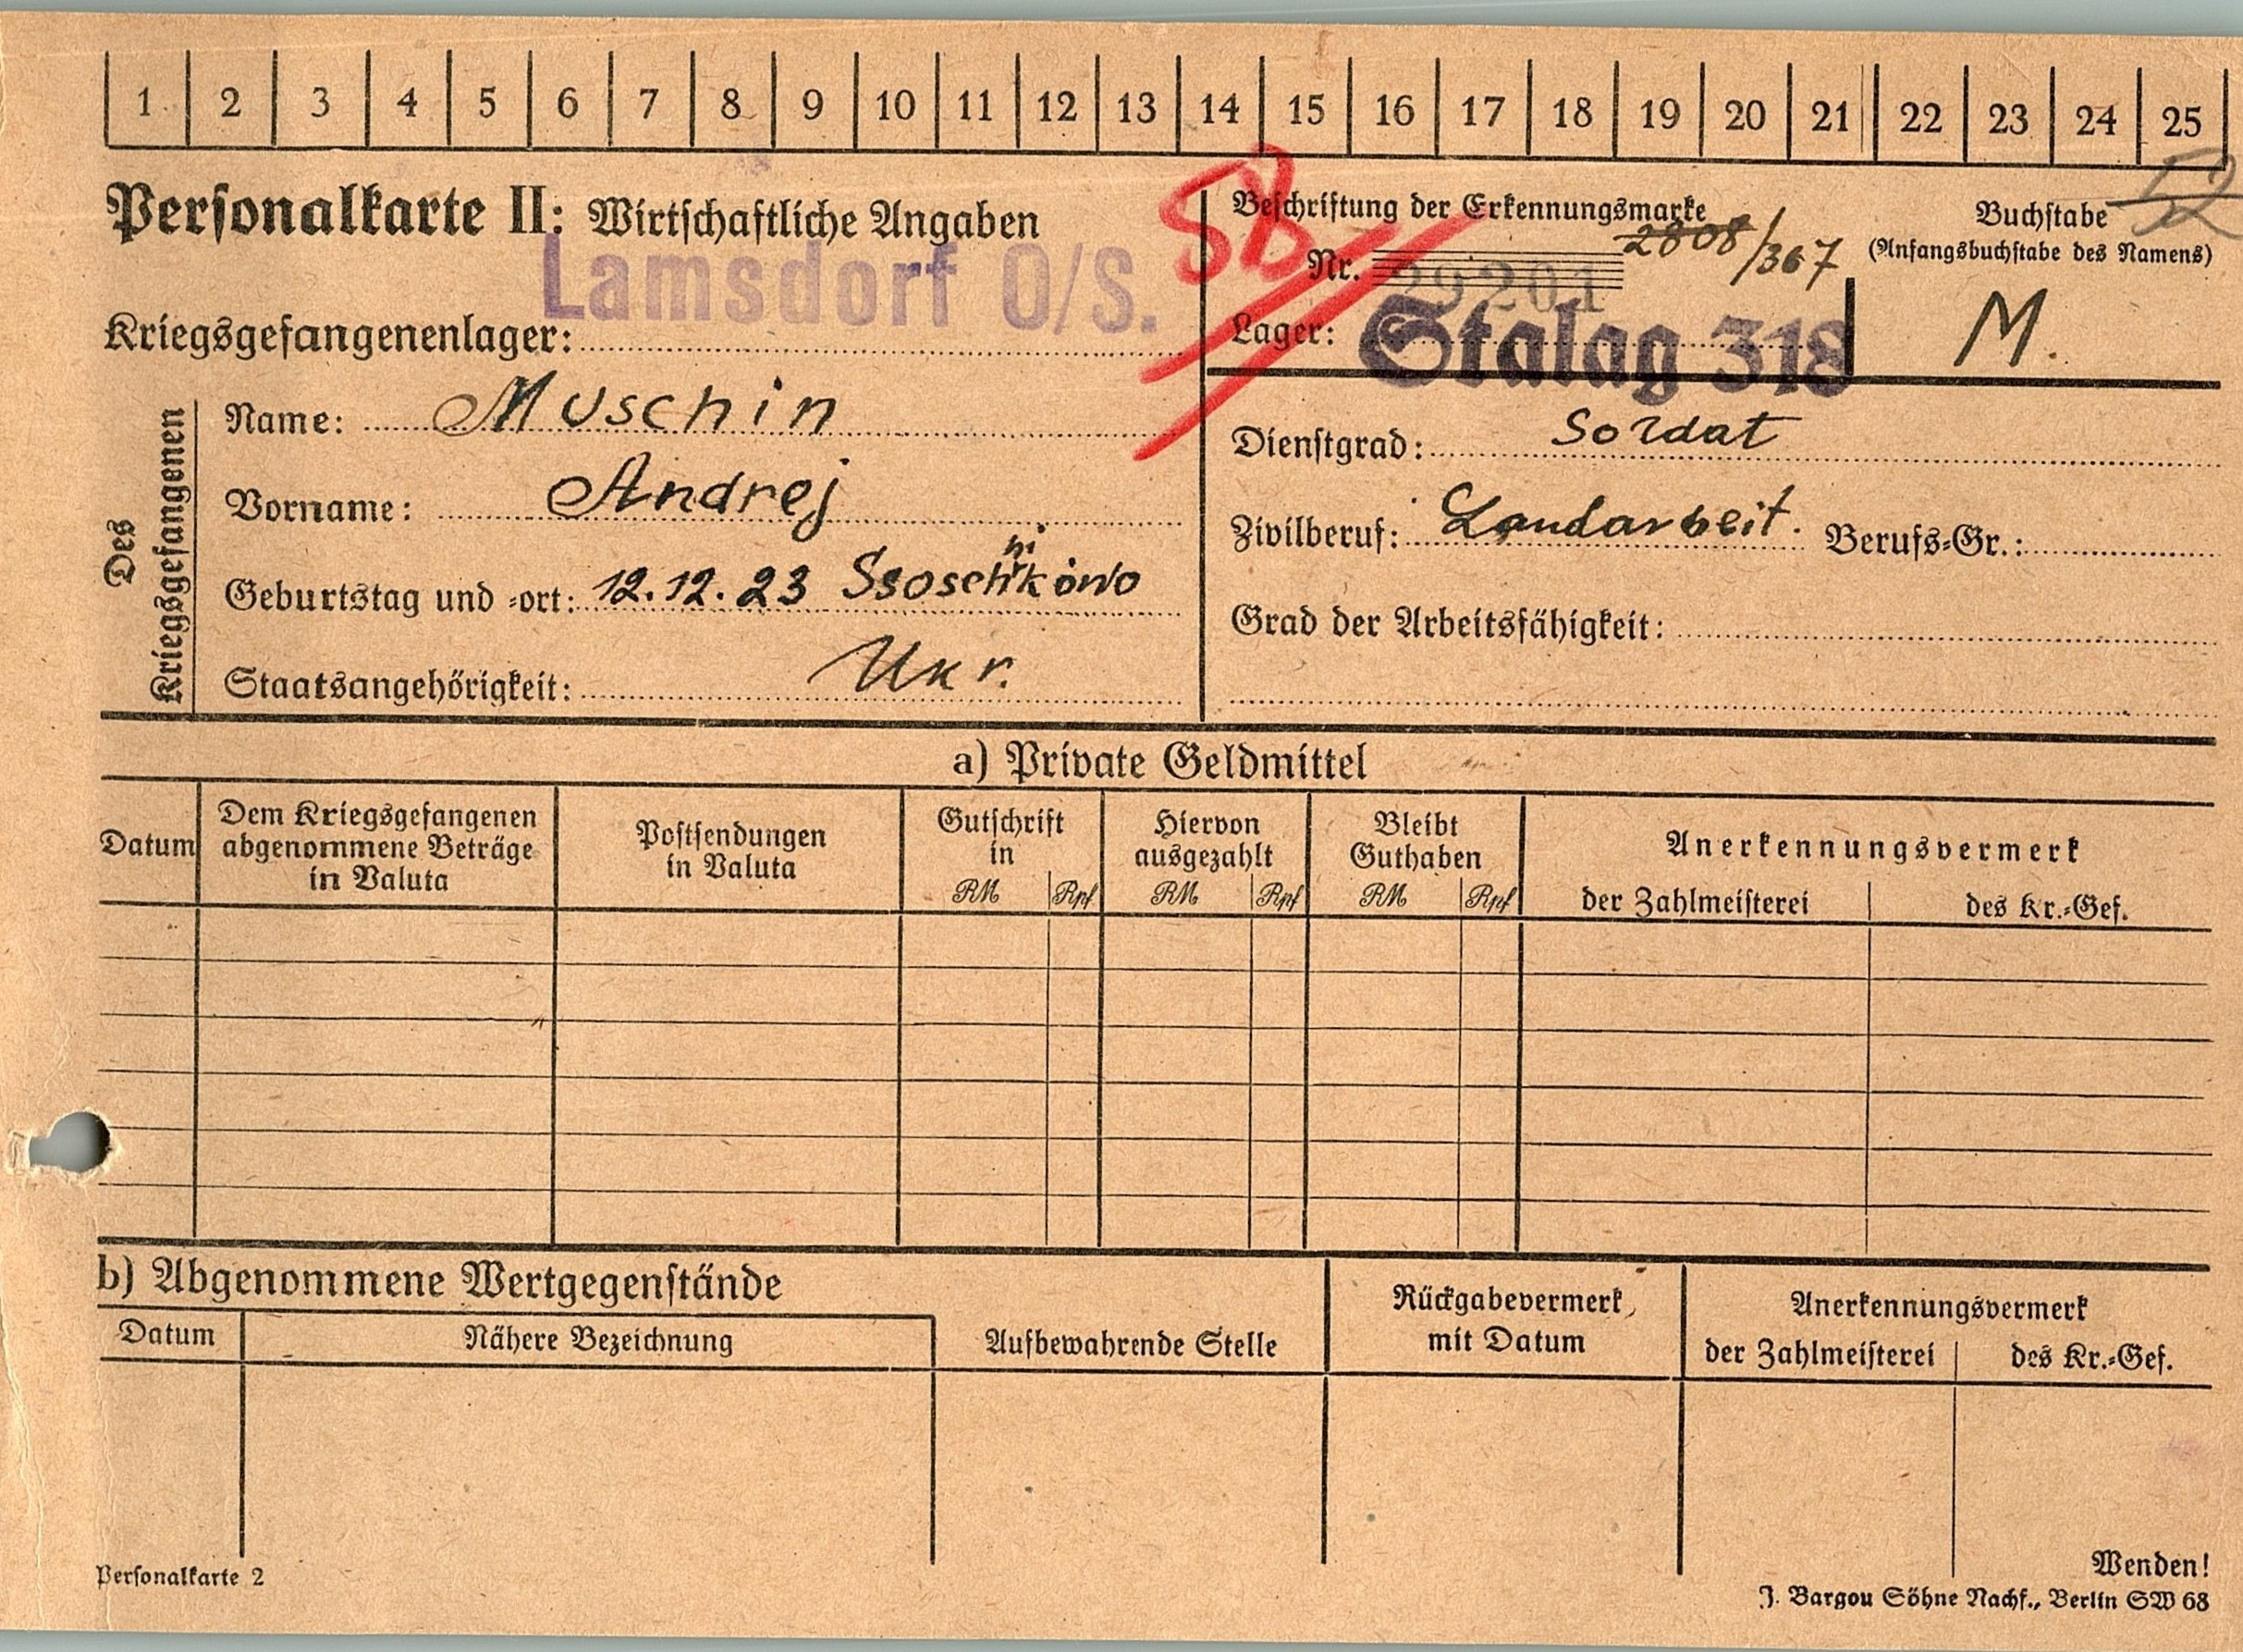 1 2 3 4 5 6 7 8 9 10 11 12 13 14 15 16 17 18 19 20 21 22 23 24 25
52
Personalkarte II: Wirtschaftliche Angaben
SB
Beschriftung der Erkennungsmarke
2808/367
Nr. 29201
Buchstabe
(Anfangsbuchstabe des Namens)
M.
Lamsdorf O/S.
Kriegsgefangenenlager:
Lager: Stalag 318
Des Kriegsgefangenen
Name: Muschin
Vorname: Andrej
Geburtstag und -ort: 12.12.23
Staatsangehörigkeit: Ukr.
Dienstgrad: Soldat
Zivilberuf: Landarbeit. Berufs-Gr.:
Grad der Arbeitsfähigkeit:
a) Private Geldmittel
Datum
Dem Kriegsgefangenen
abgenommene Beträge
in Valuta
Postsendungen
in Valuta
Gutschrift
in
RM Rpf
Hiervon
ausgezahlt
RM Rpf
Bleibt
Guthaben
RM Rpf
Anerkennungsvermerk
der Zahlmeisterei des Kr.-Gef.
b) Abgenommene Wertgegenstände
Datum Nähere Bezeichnung
Aufbewahrende Stelle
Rückgabevermerk
mit Datum
Anerkennungsvermerk
der Zahlmeisterei des Kr.-Gef.
Personalkarte 2
Wenden!
J. Bargou Söhne Nachf., Berlin SW 68